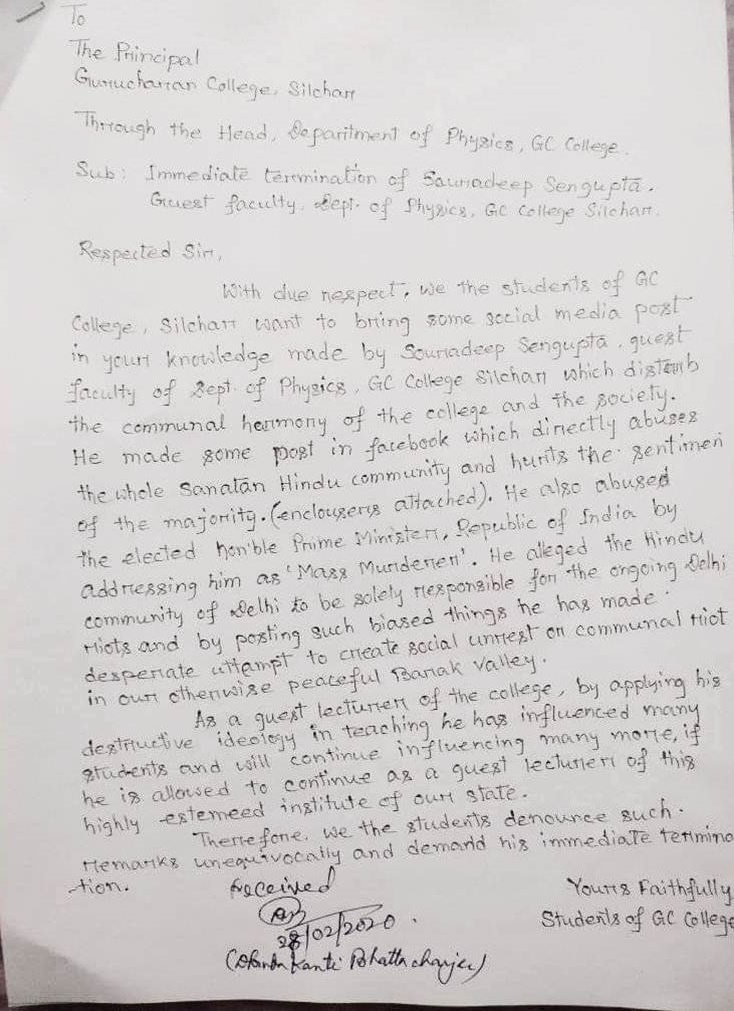 To
The Principal
Gurucharan College, Silchar
Through the Head, Department of Physics, GC College.
Sub: Immediate termination of Souradeep Sengupta.
Guest faculty. Dept. of Physics, GC College Silchar.
Respected Sir,
With due respect, we the students of GC
College, Silchar want to bring some social media post
in your knowledge made by Souradeep Sengupta, guest
faculty of Dept. of Physics, GC College Silchar which disterub
the communal hermony of the college and the society.
He made some post in facebook which directly abuses
the whole Sanatan Hindu community and hurts the sentimen
of the majority. (enclousers attached). He also abused
the elected hon'ble Prime Minister, Republic of India by
addressing him as 'Mass Murderer'. He alleged the Hindu
community of Delhi to be solely responsible for the ongoing Delhi
riots and by posting such biased things he has made
desperate attampt to create social unrest or communal riot
in our otherwise peaceful Barak Valley.
As a guest lecturer of the college, by applying his
destructive ideology in teaching he has influenced many
students and will continue influencing many more, if
he is allowed to continue as a guest lecturer of this
highly estemeed institute of our state.
Therefore, we the students denounce such
remarks unequivocally and demand his immediate termina
-tion.
Received
Yours Faithfully
28/02/2020.
Students of GC College
Kanti Bhattacharjee)